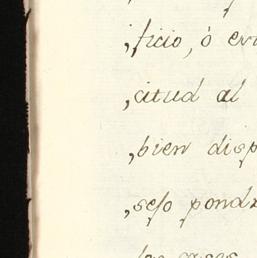 ,ficio, ó
,citud al
,bien disp
,seso pond